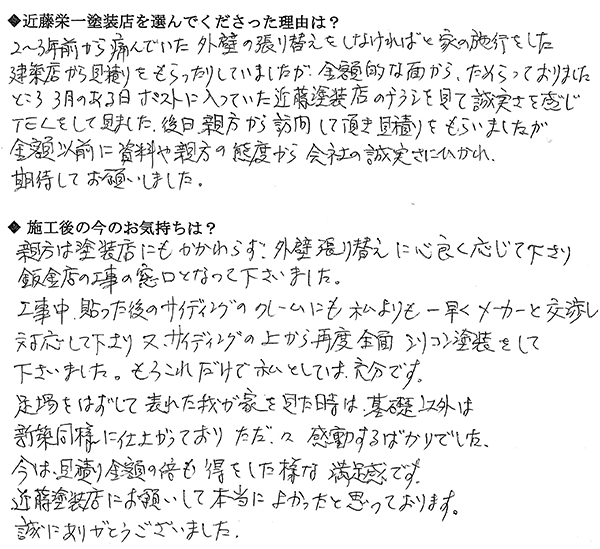 ◆近藤栄一塗装店を選んでくださった理由は？
2～3年前から痛んでいた 外壁の張り替えをしなければと 家の施行をした
建築店から見積りをもらったりしていましたが、金額的な面から、ためらっておりました
ところ 3月のある日 ポストに入っていた近藤塗装店のチラシを見て誠実さを感じ
TELをして見ました、後日 親方から訪問して頂き見積りをもらいましたが
金額以前に資料や親方の態度から 会社の誠実さにひかれ、
期待してお願いしました。
◆ 施工後の今のお気持ちは？
親方は塗装店にもかかわらず、外壁張り替えに心良く応じて下さり
鈑金店の工事の窓口となって下さいました。
工事中、貼った後のサイディングのクレームにも私よりも一早くメーカーと交渉し
対応して下さり 又、サイディングの上から再度全面シリコン塗装をして
下さいました。もうこれだけで私としては、充分です。
足場をはずして表れた我が家を見た時は、基礎以外は
新築同様に仕上がっており ただ々 感動するばかりでした。
今は、見積り金額の倍も 得をした様な 満足感です。
近藤塗装店にお願いして本当によかったと思っております。
誠にありがとうございました.